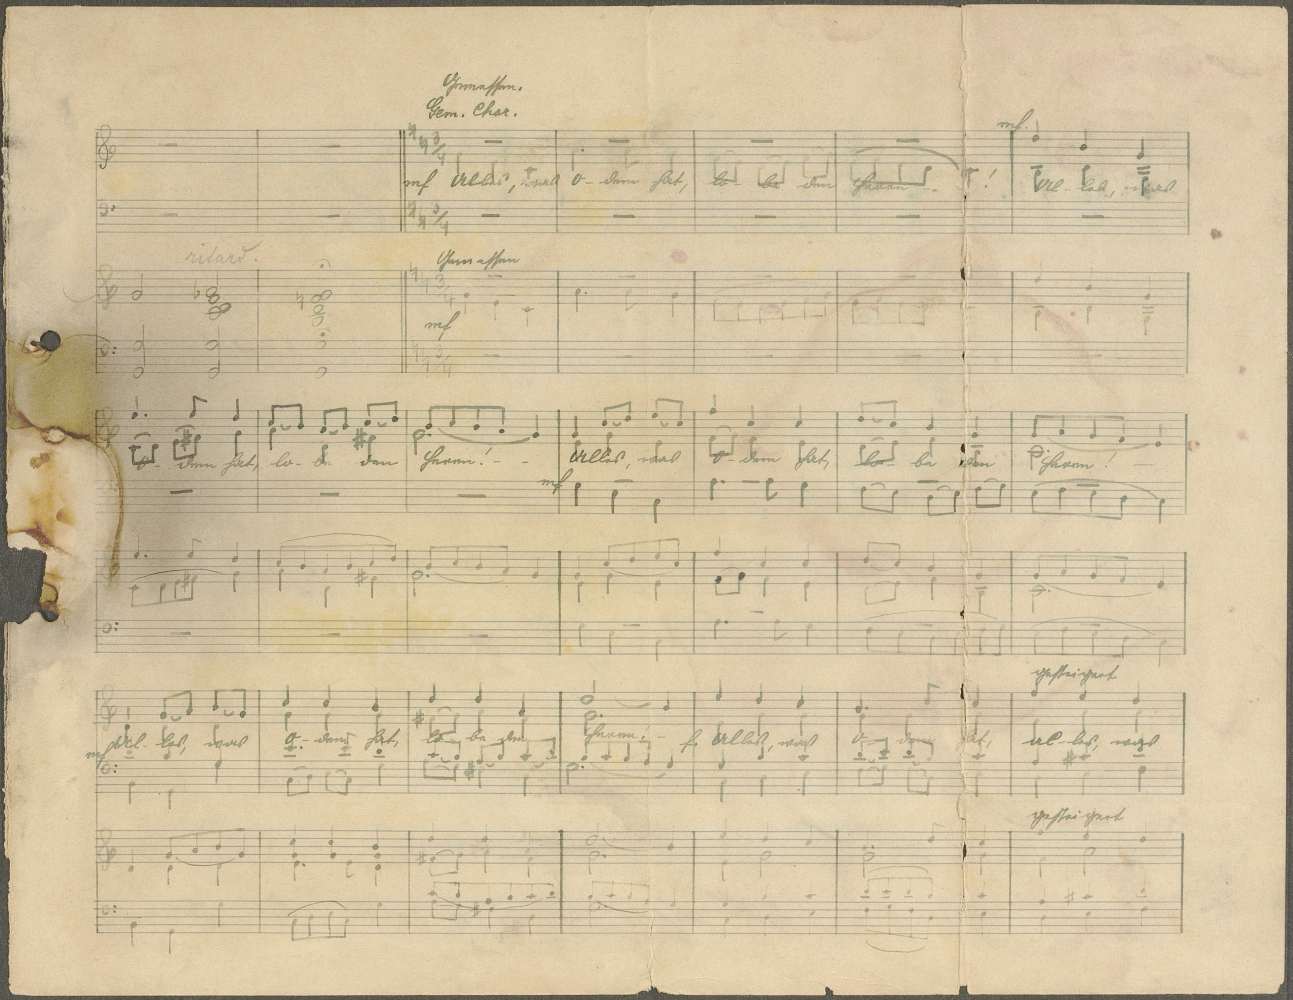 Gemessen.
Gem. Chor.
mf.
mf Alles, was O-dem hat, lo-be den Herrn - - ! Al-les, was
ritard.
Gemessen
mf
O-dem hat, lo-be den Herrn! - - Alles, was O-dem hat, lo-be den Herrn! -
mf
gesteigert
mf Al-les, was O-dem hat, lo-be den Herrn! - f. Alles, was O-dem hat, Al-les, was
gesteigert